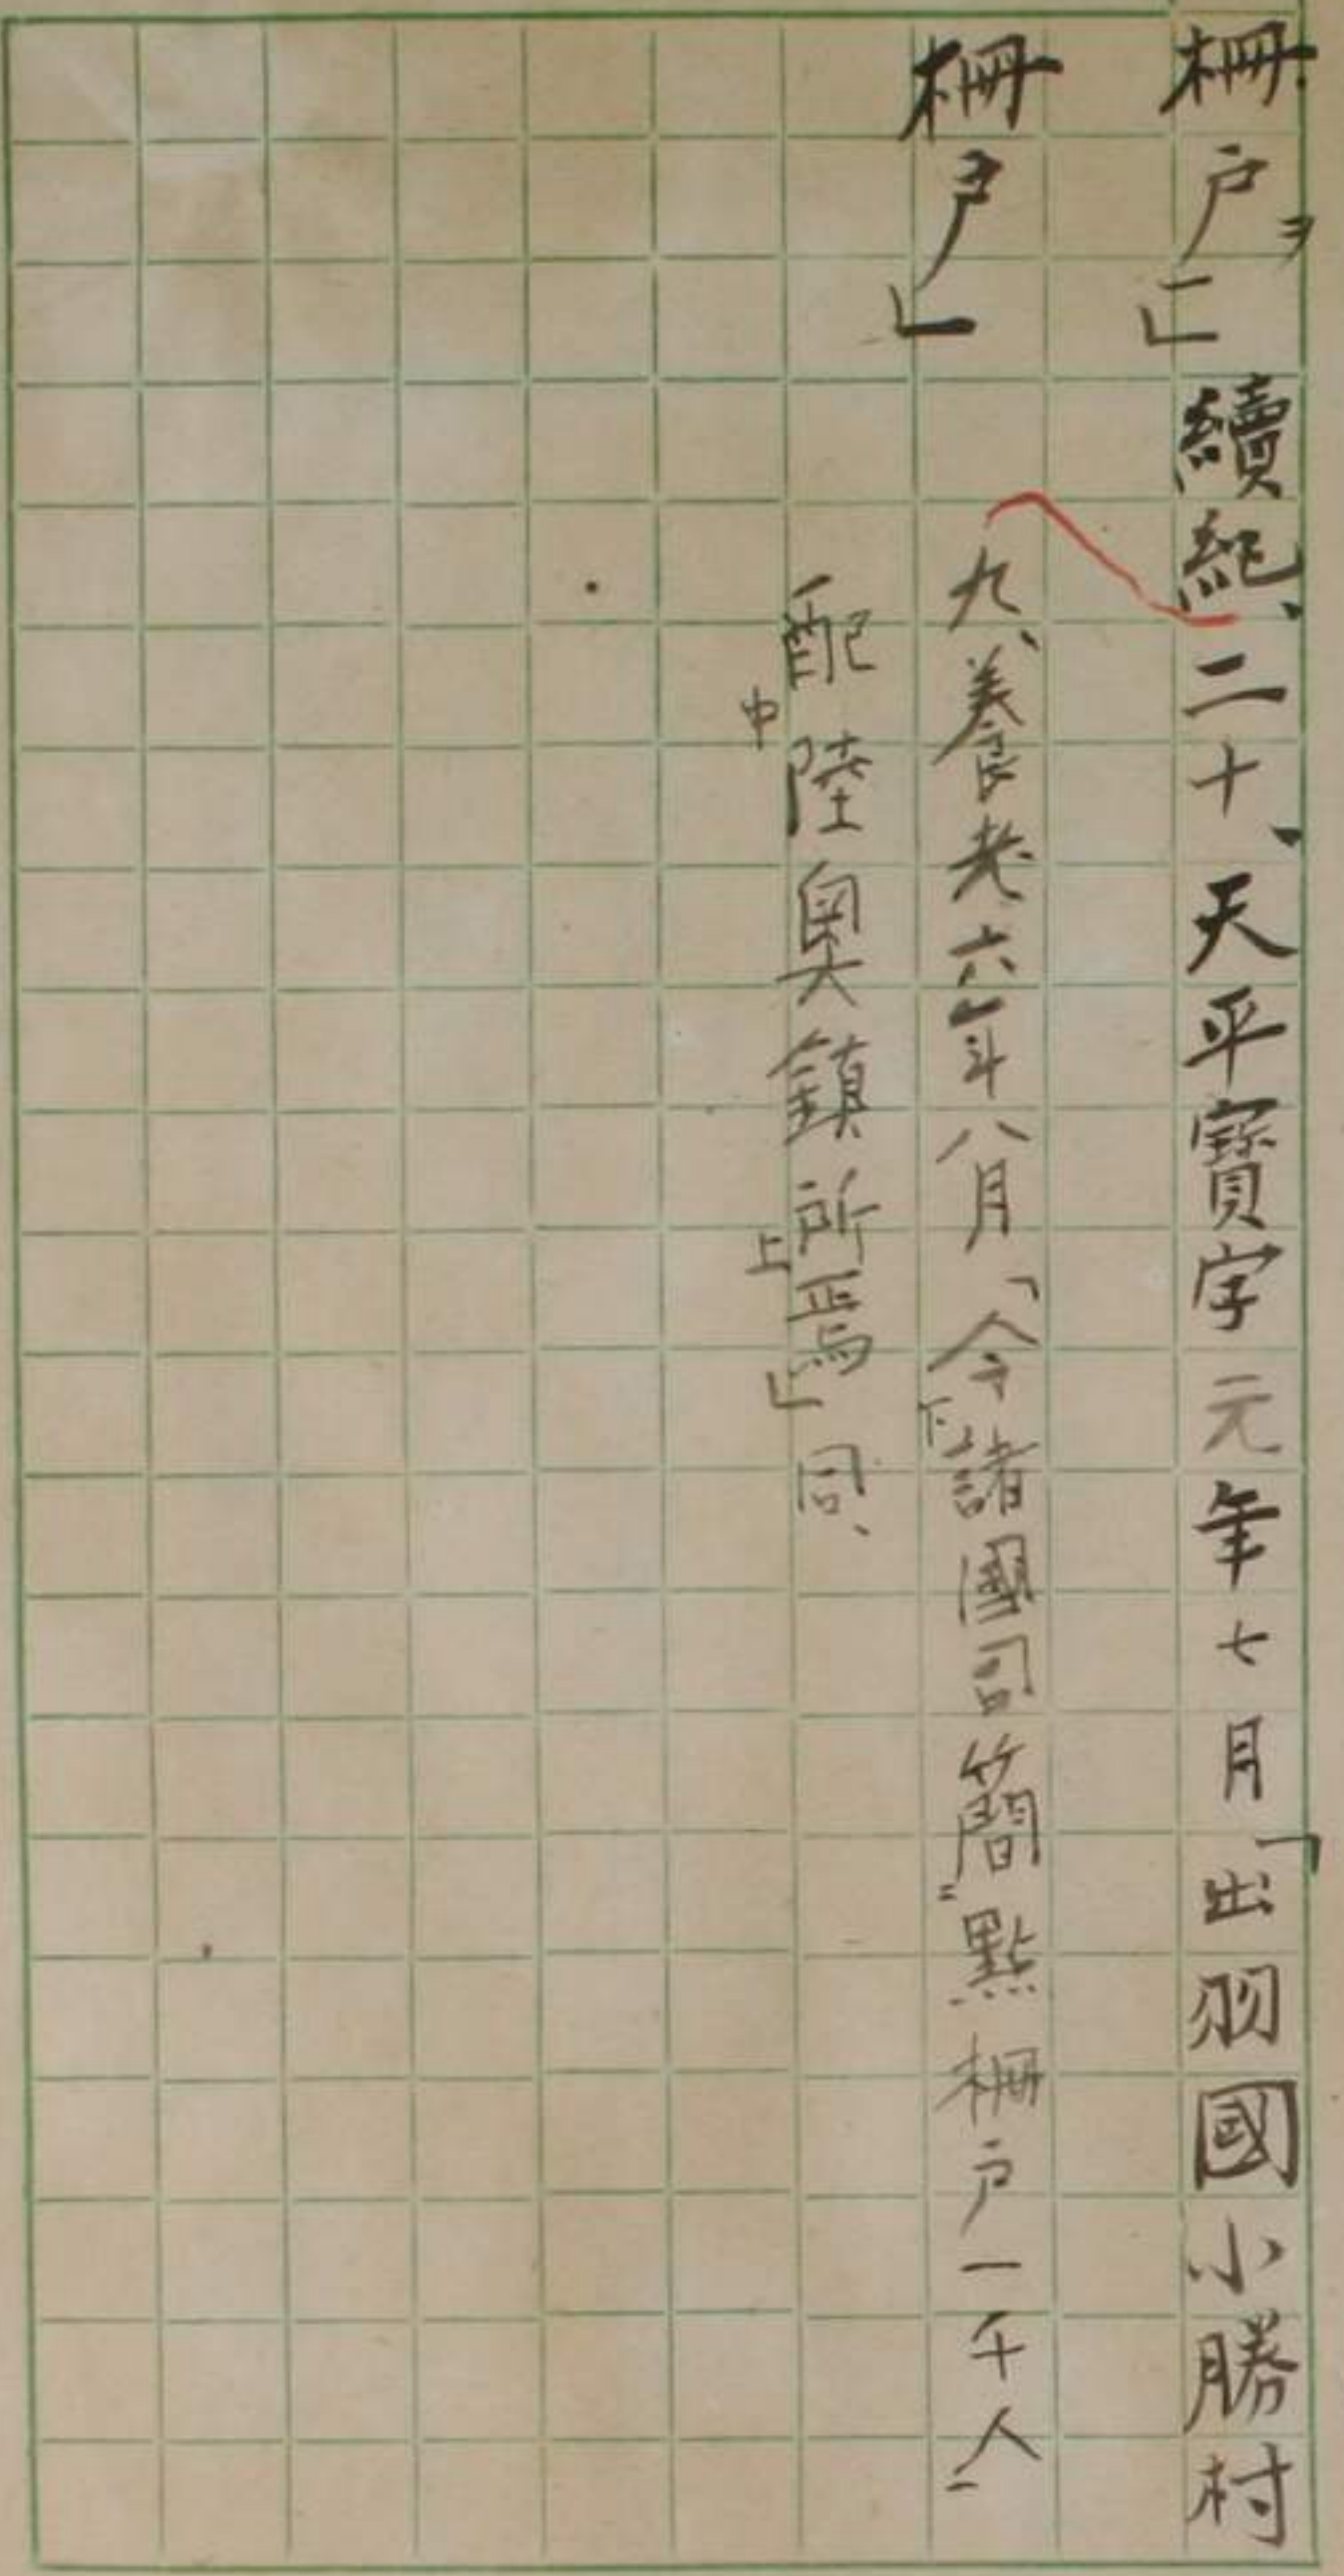 柵戸ヲ」續紀、二十、天平寶字元年七月「出羽國小勝村
柵戸」
九、養老六年八月「令下諸國司簡二點柵戸一千人一
配中陸奥鎮所上焉」同、